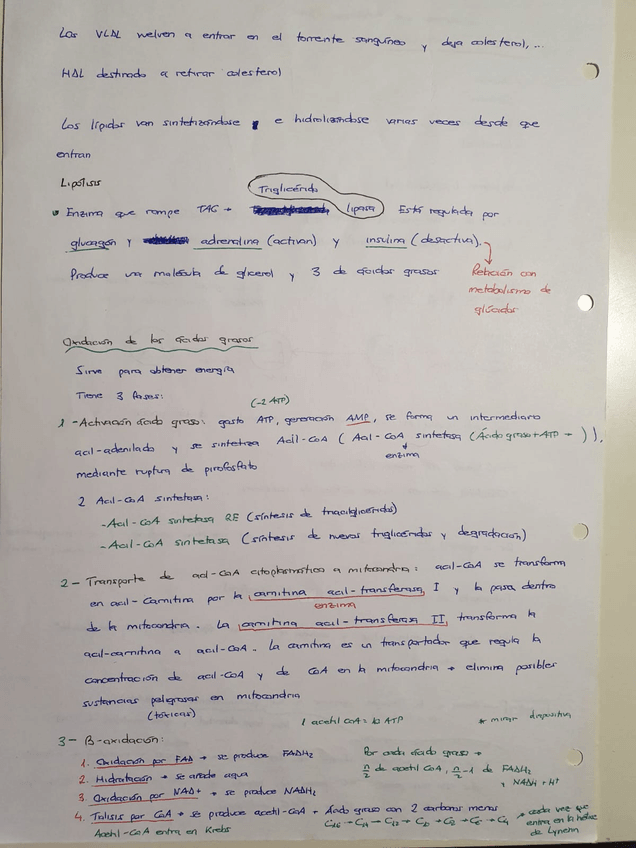 Los VLDL vuelven a entrar en el torrente sanguíneo y deja colesterol, ...
HDL destinado a retirar colesterol
Los lípidos van sintetizándose e hidrolizándose varias veces desde que
entran
Lipólisis
Triglicérido
Enzima que rompe TAG → lipasa Está regulada por
glucagón y adrenalina (activan) y insulina (desactiva).
Produce una molécula de glicerol y 3 de ácidos grasos
Relación con
metabolismo de
glúcidos
Oxidación de los ácidos grasos
Sirve para obtener energía
Tiene 3 fases:
(-2 ATP)
1 - Activación ácido graso: gasto ATP, generación AMP, se forma un intermediario
acil-adenilado y se sintetiza Acil-CoA (Acil-CoA sintetasa (Ácido graso + ATP → )),
enzima
mediante ruptura de pirofosfato
2 Acil-CoA sintetasa:
- Acil-CoA sintetasa RE (síntesis de triacilglicéridos)
- Acil-CoA sintetasa (síntesis de nuevos triglicéridos y degradación)
2 - Transporte de acil-CoA citoplasmático a mitocondria: acil-CoA se transforma
en acil-Carnitina por la carnitina acil-transferasa I y la pasa dentro
enzima
de la mitocondria. La carnitina acil-transferasa II, transforma la
acil-carnitina a acil-CoA. La carnitina es un transportador que regula la
concentración de acil-CoA y de CoA en la mitocondria → elimina posibles
sustancias peligrosas en mitocondria
(tóxicas)
1 acetil CoA = 10 ATP * mirar diapositiva
3 - β-oxidación:
1. Oxidación por FAD → se produce FADH2
2. Hidratación → se añade agua
3. Oxidación por NAD+ → se produce NADH2
4. Tiólisis por CoA → se produce acetil-CoA + Ácido graso con 2 carbonos menos
Acetil-CoA entra en Krebs
Por cada ácido graso →
n/2 de acetil CoA, n/2 - 1 de FADH2
y NADH + H+
C16 → C14 → C12 → C10 → C8 → C6 → C4
cada vez que
entra en la hélice
de Lynenn